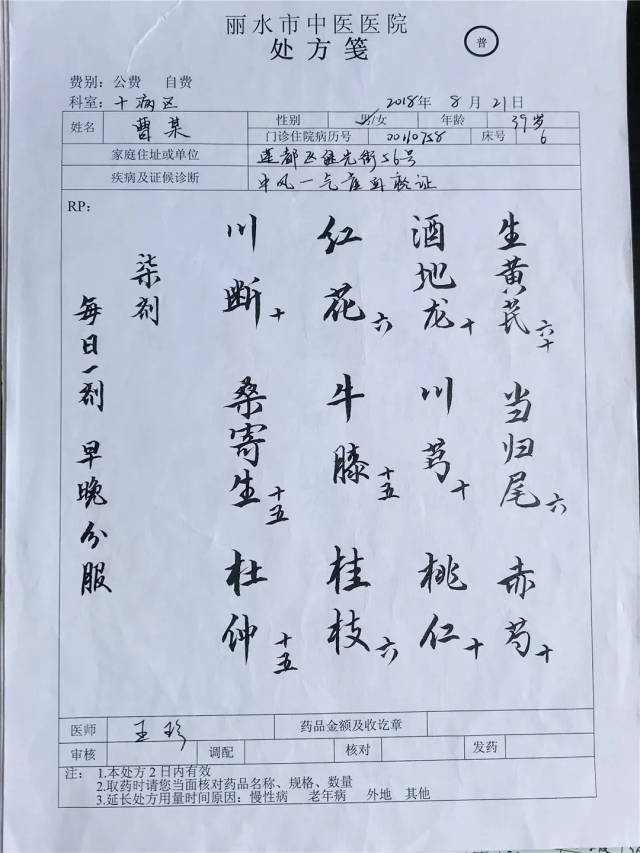 丽水市中医医院
处方笺
普
费别: 公费 自费
科室: 十病区 2018年 8月 21日
姓名 曹某 性别 男/女 年龄 39岁
门诊住院病历号 00110758 床号 6
家庭住址或单位 莲都区继光街56号
疾病及证候诊断 中风—气虚血瘀证
RP:
生黄芪六十 当归尾六 赤芍十
酒地龙十 川芎十 桃仁十
红花六 牛膝十五 桂枝六
川断十 桑寄生十五 杜仲十五
柒剂
每日一剂 早晚分服
医师 王珍 药品金额及收讫章
审核 调配 核对 发药
注: 1.本处方2日内有效
2.取药时请您当面核对药品名称、规格、数量
3.延长处方用量时间原因: 慢性病 老年病 外地 其他